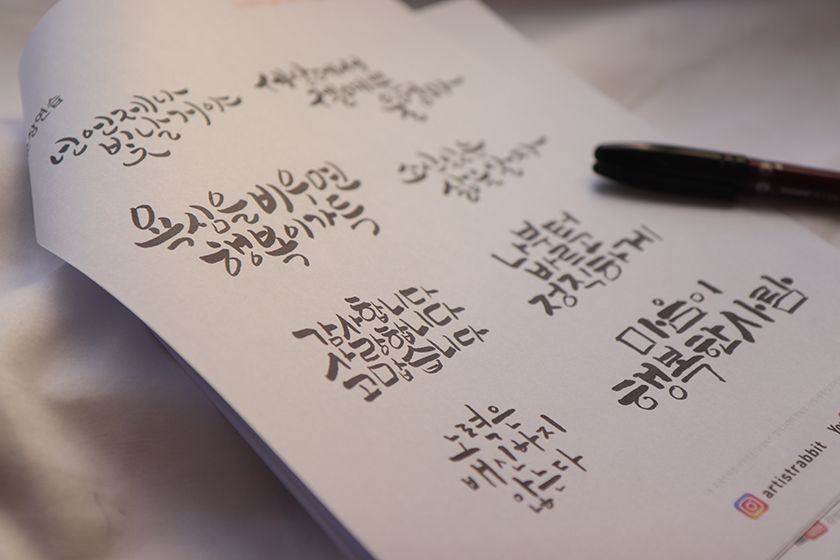 넌 언제나
빛날거야
욕심을 비우면
행복이 가득
나부터
바르고
정직하게
감사합니다
사랑합니다
고맙습니다
마음이
행복한 사람
노력은
배신하지
않는다
artistrabbit